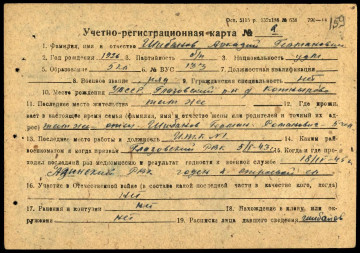 Учетно-регистрационная карта № 2
1. Фамилия, имя и отчество Шибанов Аркадий Германович
2. Год рождения 1926 г. Партийность б/п 3. Национальность удм.
5. Образование 5 кл 6. № ВУС 7. Должностная квалификация
8. Военное звание ряд 9. Гражданская специальность нет
10. Место рождения УАССР, Глазовский р-н д.
11. Последнее место жительства там же 12. Где прожи-
вает в настоящее время семья (фамилия, имя и отчество жены или родителей и точный их ад-
рес) там же отец Шибанов Герман
13. Последнее место работы и должность 14. Каким рай-
военкоматом и когда призван Глазовский РВК 5/II-43 15. Когда и где про-
ходил последний раз медкомиссию и результат годности к военной службе 18/II-45
РВК годен к строевой сл
16. Участие в Отечественной войне (в составе какой последней части в качестве кого, когда)
нет
17. Ранения и контузии нет 18. Нахождение в плену, или ок-
ружения нет 19. Расписка лица давшего сведения Шибанов